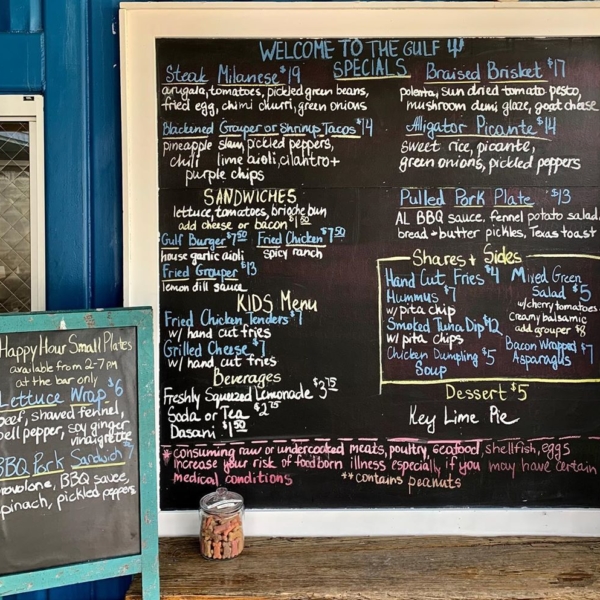 WELCOME TO THE GULF
SPECIALS
Steak Milanese $19
arugala, tomatoes, pickled green beans,
fried egg, chimi churri, green onions
Blackened Grouper or Shrimp Tacos $14
pineapple slaw, pickled peppers,
chili lime aioli, cilantro +
purple chips
Braised Brisket $17
polenta, sun dried tomato pesto,
mushroom demi glaze, goat cheese
Alligator Picante $14
sweet rice, picante,
green onions, pickled peppers
SANDWICHES
lettuce, tomatoes, brioche bun
add cheese or bacon $1.50
Gulf Burger $7.50
house garlic aioli
Fried Chicken $7.50
spicy ranch
Fried Grouper $13
lemon dill sauce
KIDS Menu
Fried Chicken Tenders $7
w/ hand cut fries
Grilled Cheese $7
w/ hand cut fries
Beverages
Freshly Squeezed Lemonade $3.75
Soda or Tea $2.75
Dasani $1.50
Pulled Pork Plate $13
AL BBQ sauce, fennel potato salad,
bread + butter pickles, Texas toast
Shares + Sides
Hand Cut Fries $4
Hummus $7
w/ pita chip
Smoked Tuna Dip $12
w/ pita chips
Chicken Dumpling $5
Soup
Mixed Green
Salad $5
w/ cherry tomatoes
Creamy balsamic
add grouper $8
Bacon Wrapped $7
Asparagus
Dessert $5
Key Lime Pie
* consuming raw or undercooked meats, poultry, seafood, shellfish, eggs
increase your risk of foodborn illness especially if you may have certain
medical conditions
** contains peanuts
Happy Hour Small Plates
available from 2-7pm
at the bar only
Lettuce Wrap $6
beef, shaved fennel,
bell pepper, soy ginger
vinaigrette
BBQ Pork Sandwich $7
provolone, BBQ sauce,
spinach, pickled peppers